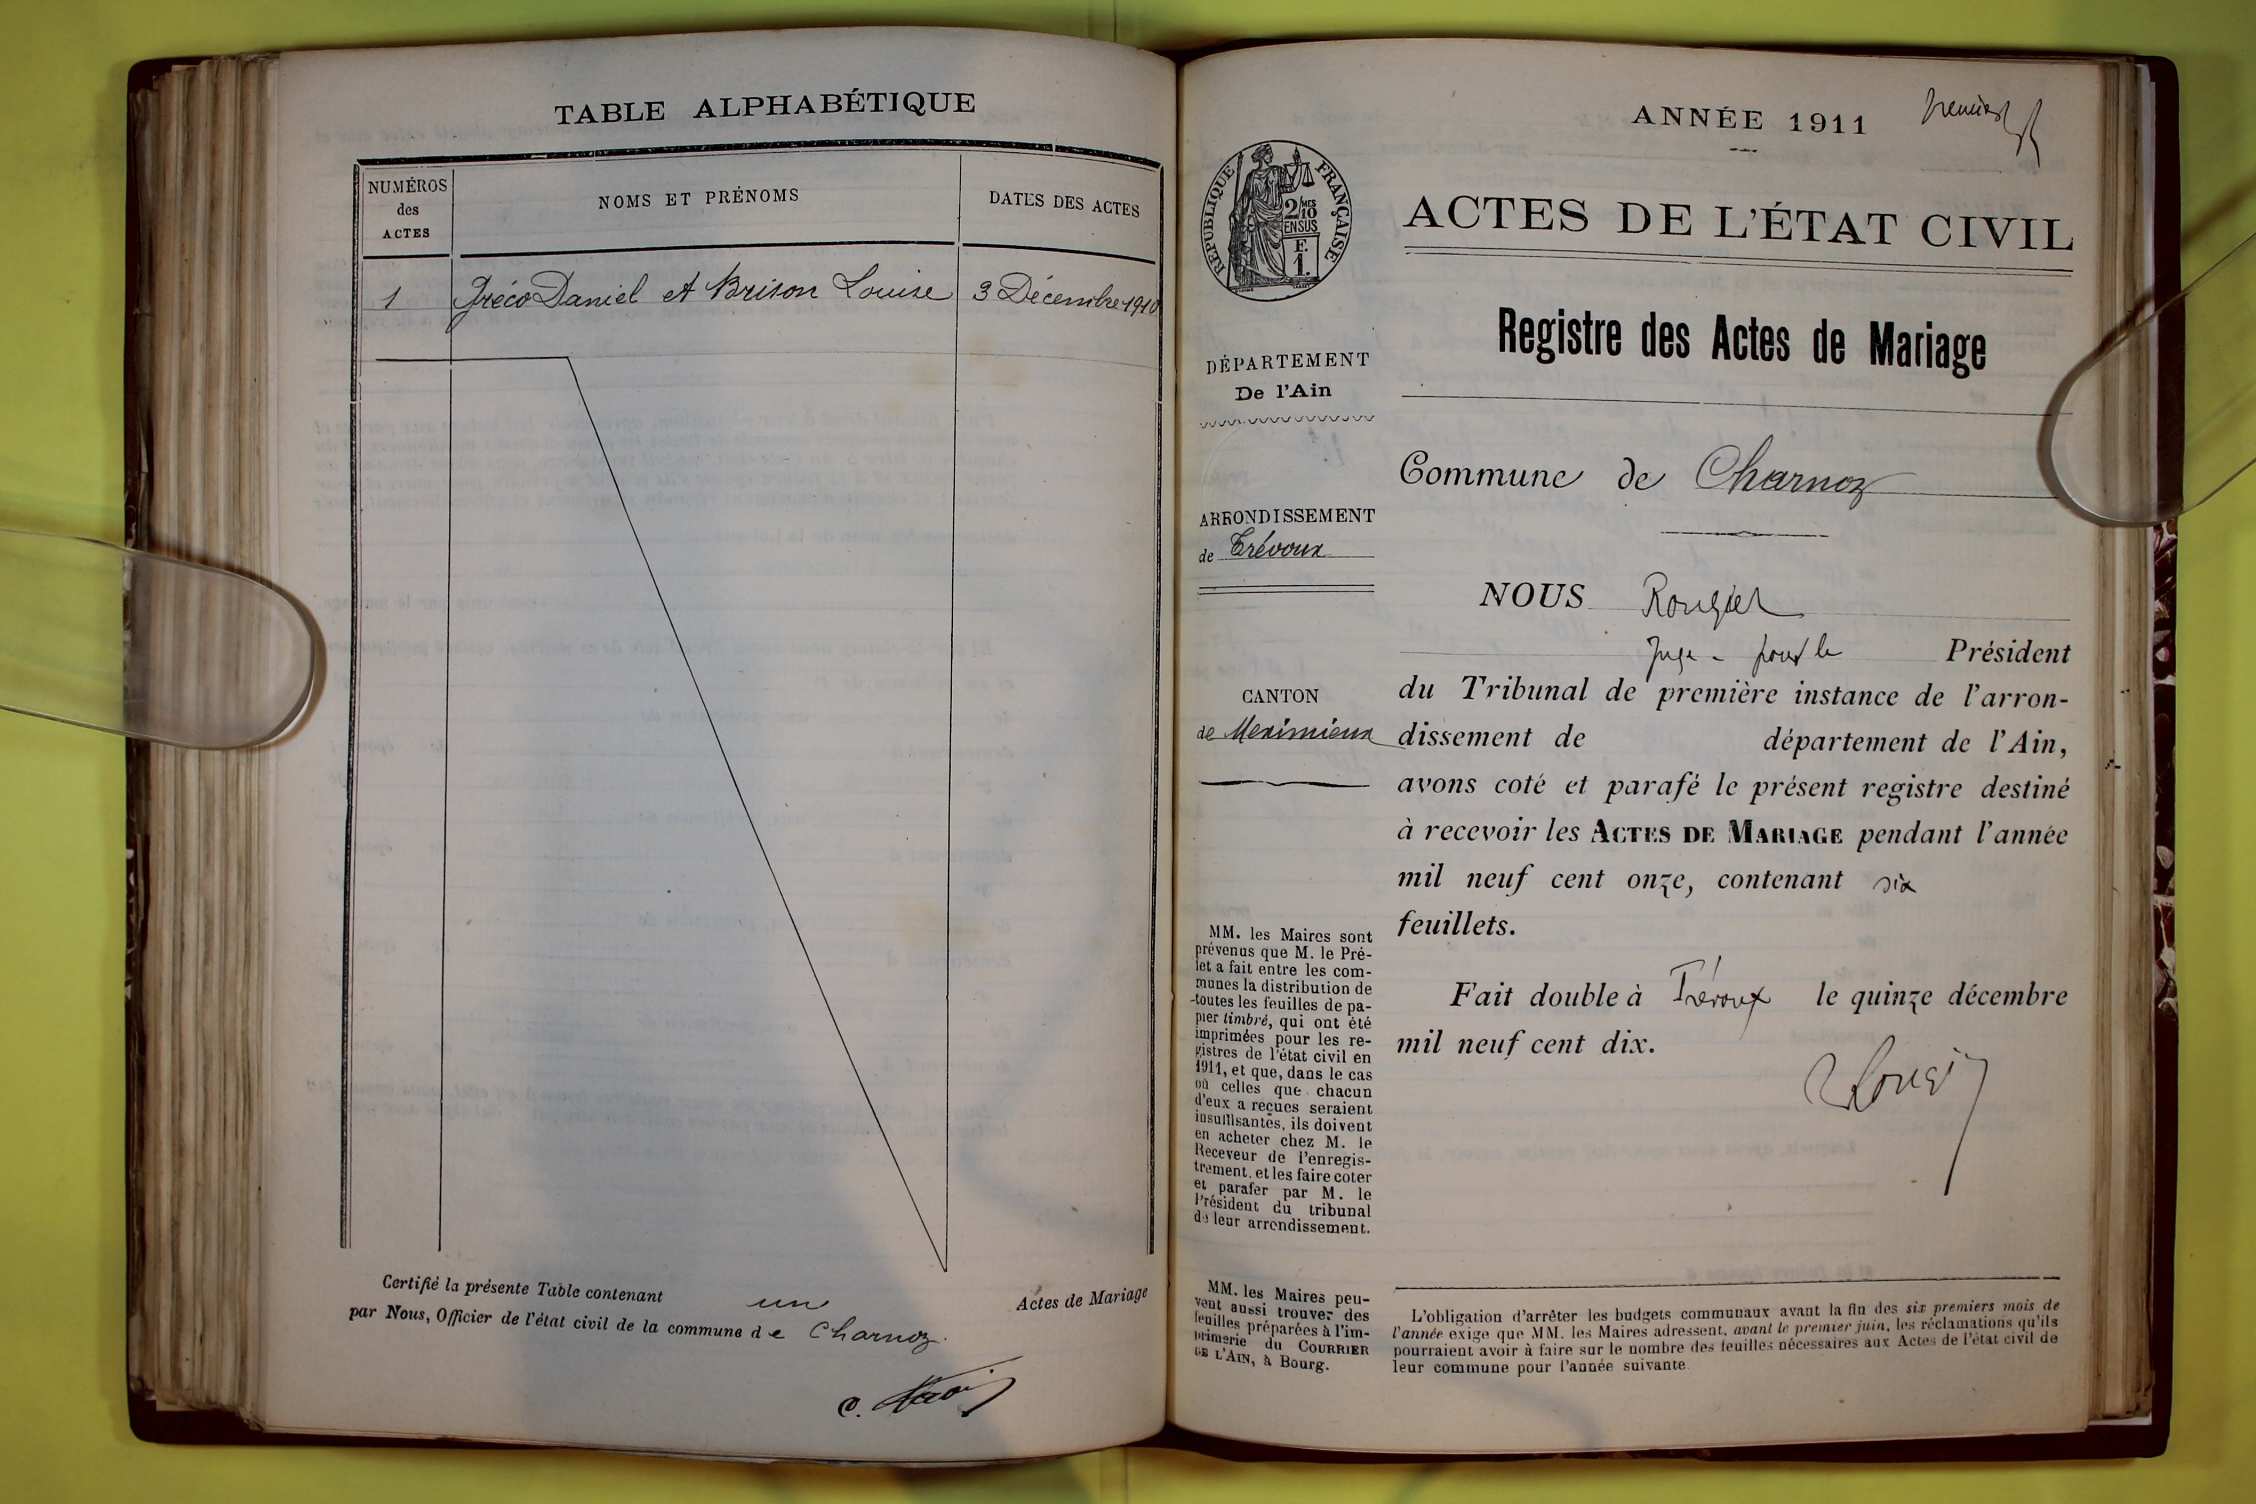 TABLE ALPHABÉTIQUE
NUMÉROS
des
ACTES
NOMS ET PRÉNOMS
DATES DES ACTES
1 Gréco Daniel et Brison Louise 3 Décembre 1910
Certifié la présente Table contenant un Actes de Mariage
par Nous, Officier de l'état civil de la commune de Charnoz.
C.
ANNÉE 1911
premier
RÉPUBLIQUE FRANÇAISE
2/10 MES
EN SUS
F.
1.
ACTES DE L'ÉTAT CIVIL
DÉPARTEMENT
De l'Ain
ARRONDISSEMENT
de Trévoux
CANTON
de Meximieux
MM. les Maires sont
prévenus que M. le Pré-
fet a fait entre les com-
munes la distribution de
toutes les feuilles de pa-
pier timbré, qui ont été
imprimées pour les re-
gistres de l'état civil en
1911, et que, dans le cas
où celles que chacun
d'eux a reçues seraient
insuffisantes, ils doivent
en acheter chez M. le
Receveur de l'enregis-
trement, et les faire coter
et parafer par M. le
Président du tribunal
de leur arrondissement.
MM. les Maires peu-
vent aussi trouver des
feuilles préparées à l'im-
primerie du COURRIER
DE L'AIN, à Bourg.
Registre des Actes de Mariage
Commune de Charnoz
NOUS Rougier
Juge - pour le Président
du Tribunal de première instance de l'arron-
dissement de département de l'Ain,
avons coté et parafé le présent registre destiné
à recevoir les ACTES DE MARIAGE pendant l'année
mil neuf cent onze, contenant six
feuillets.
Fait double à Trévoux le quinze décembre
mil neuf cent dix.
Rougier
L'obligation d'arrêter les budgets communaux avant la fin des six premiers mois de
l'année exige que MM. les Maires adressent, avant le premier juin, les réclamations qu'ils
pourraient avoir à faire sur le nombre des feuilles nécessaires aux Actes de l'état civil de
leur commune pour l'année suivante.